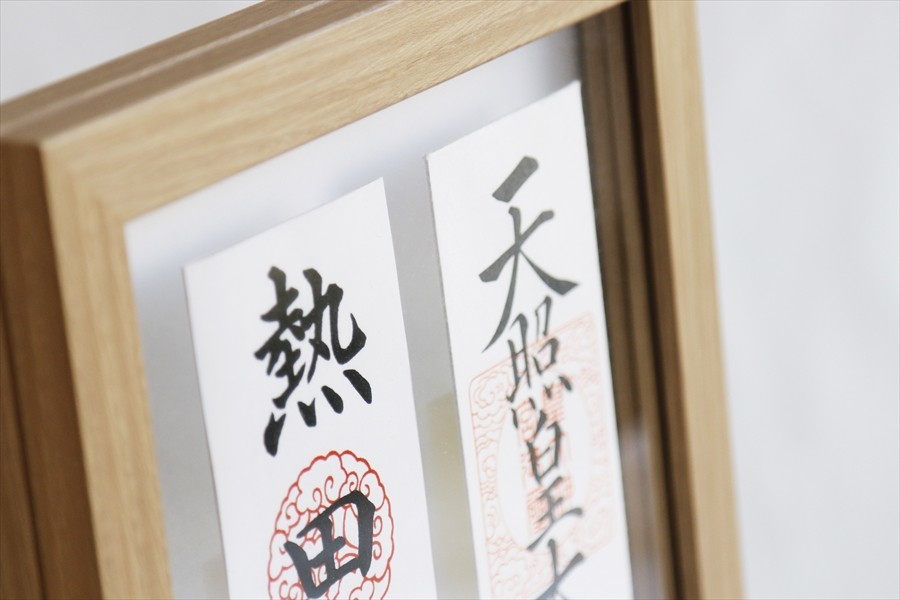 天照皇大
熱田